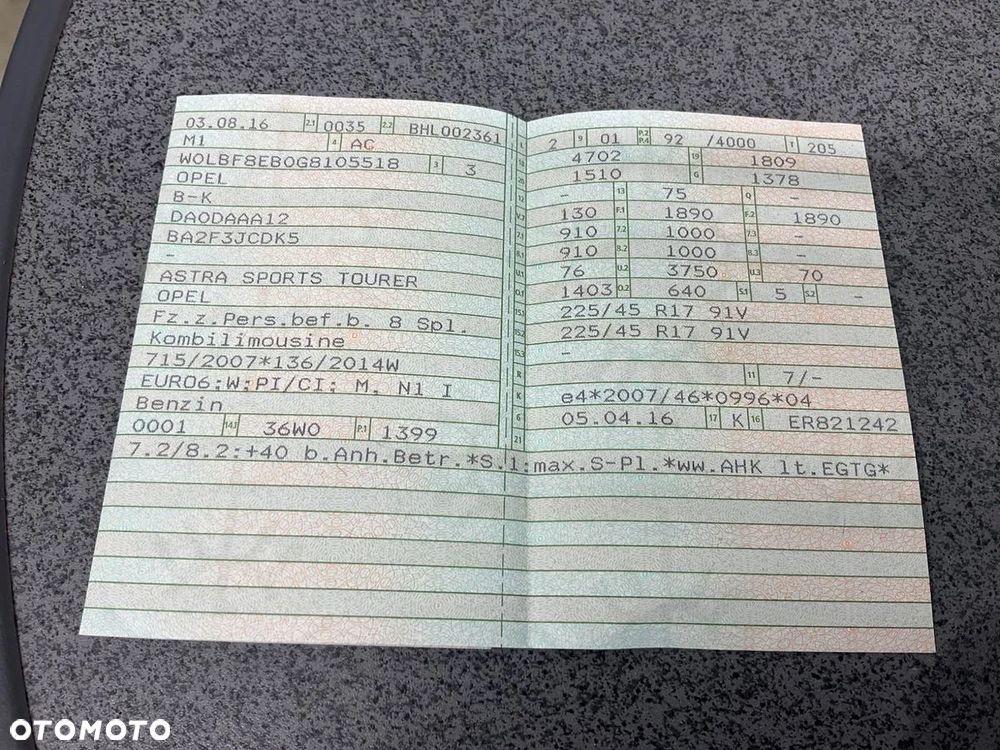 03.08.16 2.1 0035 2.2 BHL002361
M1 4 AC
W0LBF8EB0G8105518 3 3
OPEL
B-K
DA0DAAA12
BA2F3JCDK5
-
ASTRA SPORTS TOURER
OPEL
Fz.z.Pers.bef.b. 8 Spl.
Kombilimousine
715/2007*136/2014W
EURO6;W;PI/CI; M, N1 I
Benzin
0001 14.1 36W0 P.1 1399
L 2 9 01 P.2 P.4 92 /4000 T 205
18 4702 19 1809
20 1510 G 1378
12 - 13 75 Q -
V.7 130 F.1 1890 F.2 1890
7.1 910 7.2 1000 7.3 -
8.1 910 8.2 1000 8.3 -
U.1 76 U.2 3750 U.3 70
O.1 1403 O.2 640 S.1 5 S.2 -
15.1 225/45 R17 91V
15.2 225/45 R17 91V
15.3 -
R 11 7/-
K e4*2007/46*0996*04
6 05.04.16 17 K 16 ER821242
21
7.2/8.2:+40 b.Anh.Betr.*S.1:max.S-Pl.*ww.AHK lt.EGTG*
OTOMOTO